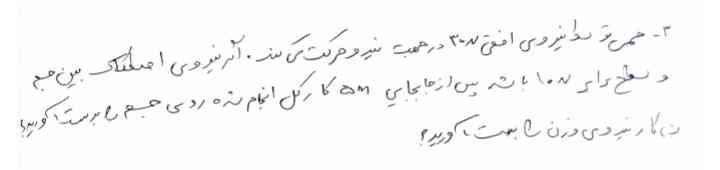 ۳- جسمی توسط نیروی افقی ۳۰N در جهت نیرو حرکت می کند. اگر نیروی اصطکاک بین جسم
و سطح برابر ۱۰N باشد پس از جابجایی ۵m کار کل انجام شده روی جسم را بدست آورید؟
کار نیروی وزن را بدست آورید؟